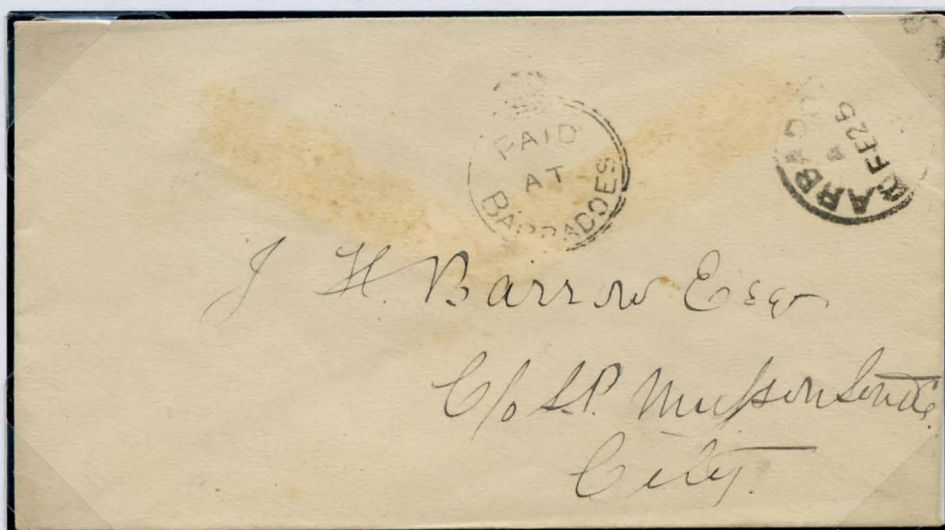 PAID
AT
BARBADOES
BARBADO
FE 25
J H. Barrow Esqr
C/o S.P. Musson Son & Co.
City.